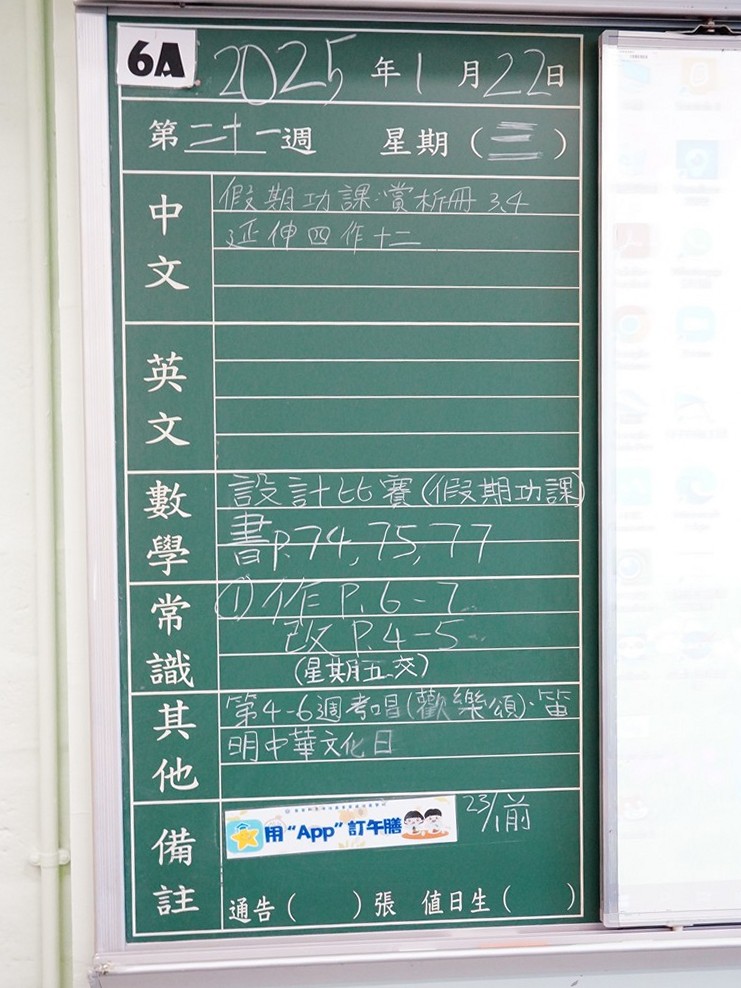 6A
2025年1月22日
第二十一週 星期(三)
中文
假期功課:賞析冊 3,4
延伸四作十二
英文
數學
設計比賽(假期功課)
書P.74,75,77
常識
① 作 P.6-7
改 P.4-5
(星期五交)
其他
第4-6週考唱(歡樂頌)、笛
明中華文化日
備註
用“App”訂午膳
23/1前
通告( )張 值日生( )